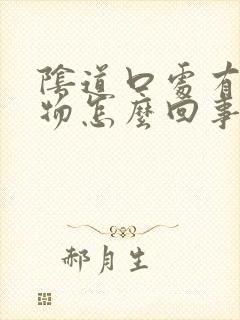 陰道口處有
物怎麼回事
郝月生